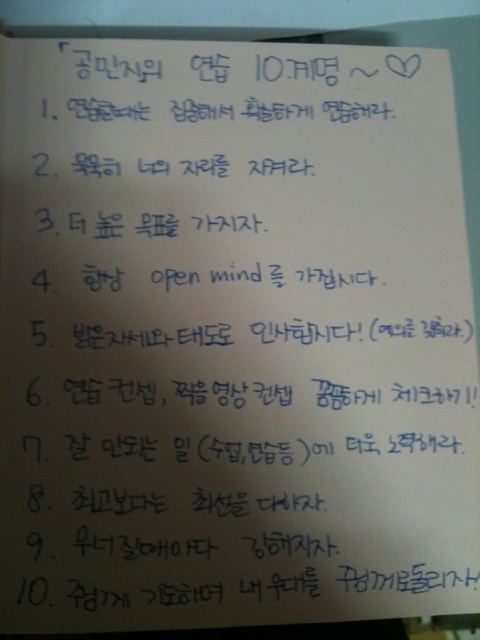 「공민지의 연습 10계명~♡
1. 연습할때는 집중해서 확실하게 연습해라.
2. 묵묵히 너의 자리를 지켜라.
3. 더 높은 목표를 가지자.
4. 항상 open mind를 가집시다.
5. 밝은자세와 태도로 인사합시다! (예의를 갖춰라.)
6. 연습 컨셉, 찍을영상컨셉 꼼꼼하게 체크하기!
7. 잘 안되는 일 (수업,연습등)에 더욱 노력해라.
8. 최고보다는 최선을 다하자.
9. 무너질때마다 강해지자.
10. 주님께 기도하며 내 무대를 주님께로돌리자!